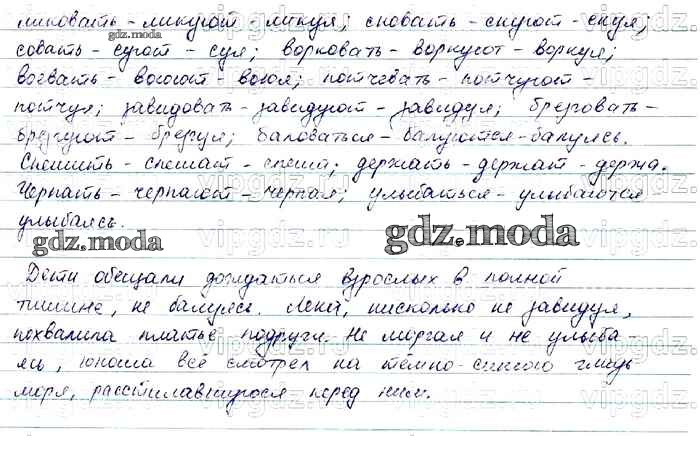 ликовать - ликуют - ликуя; сновать - снуют - снуя;
совать - суют - суя; ворковать - воркуют - воркуя;
воевать - воюют - воюя; потчевать - потчуют -
потчуя; завидовать - завидуют - завидуя; брезговать -
брезгуют - брезгуя; баловаться - балуются - балуясь.
Спешить - спешат - спеша; держать - держат - держа.
Черпать - черпают - черпая; улыбаться - улыбаются
улыбаясь.
gdz.moda
gdz.moda
gdz.moda
Дети обещали дождаться взрослых в полной
тишине, не балуясь. Лена, нисколько не завидуя,
похвалила платье подруги. Не моргая и не улыба-
ясь, юноша всё смотрел на тёмно-синюю гладь
моря, расстилавшуюся перед ним.
vipgdz.ru